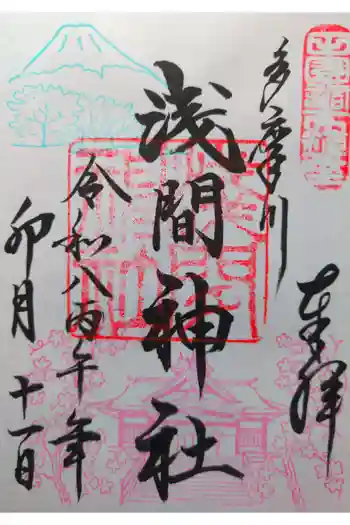 多摩川
奉拝
浅間神社
令和八丙午年
卯月十一日